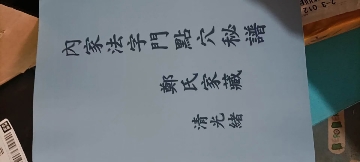 內家法字門點穴秘譜
鄭氏家藏
清光緒